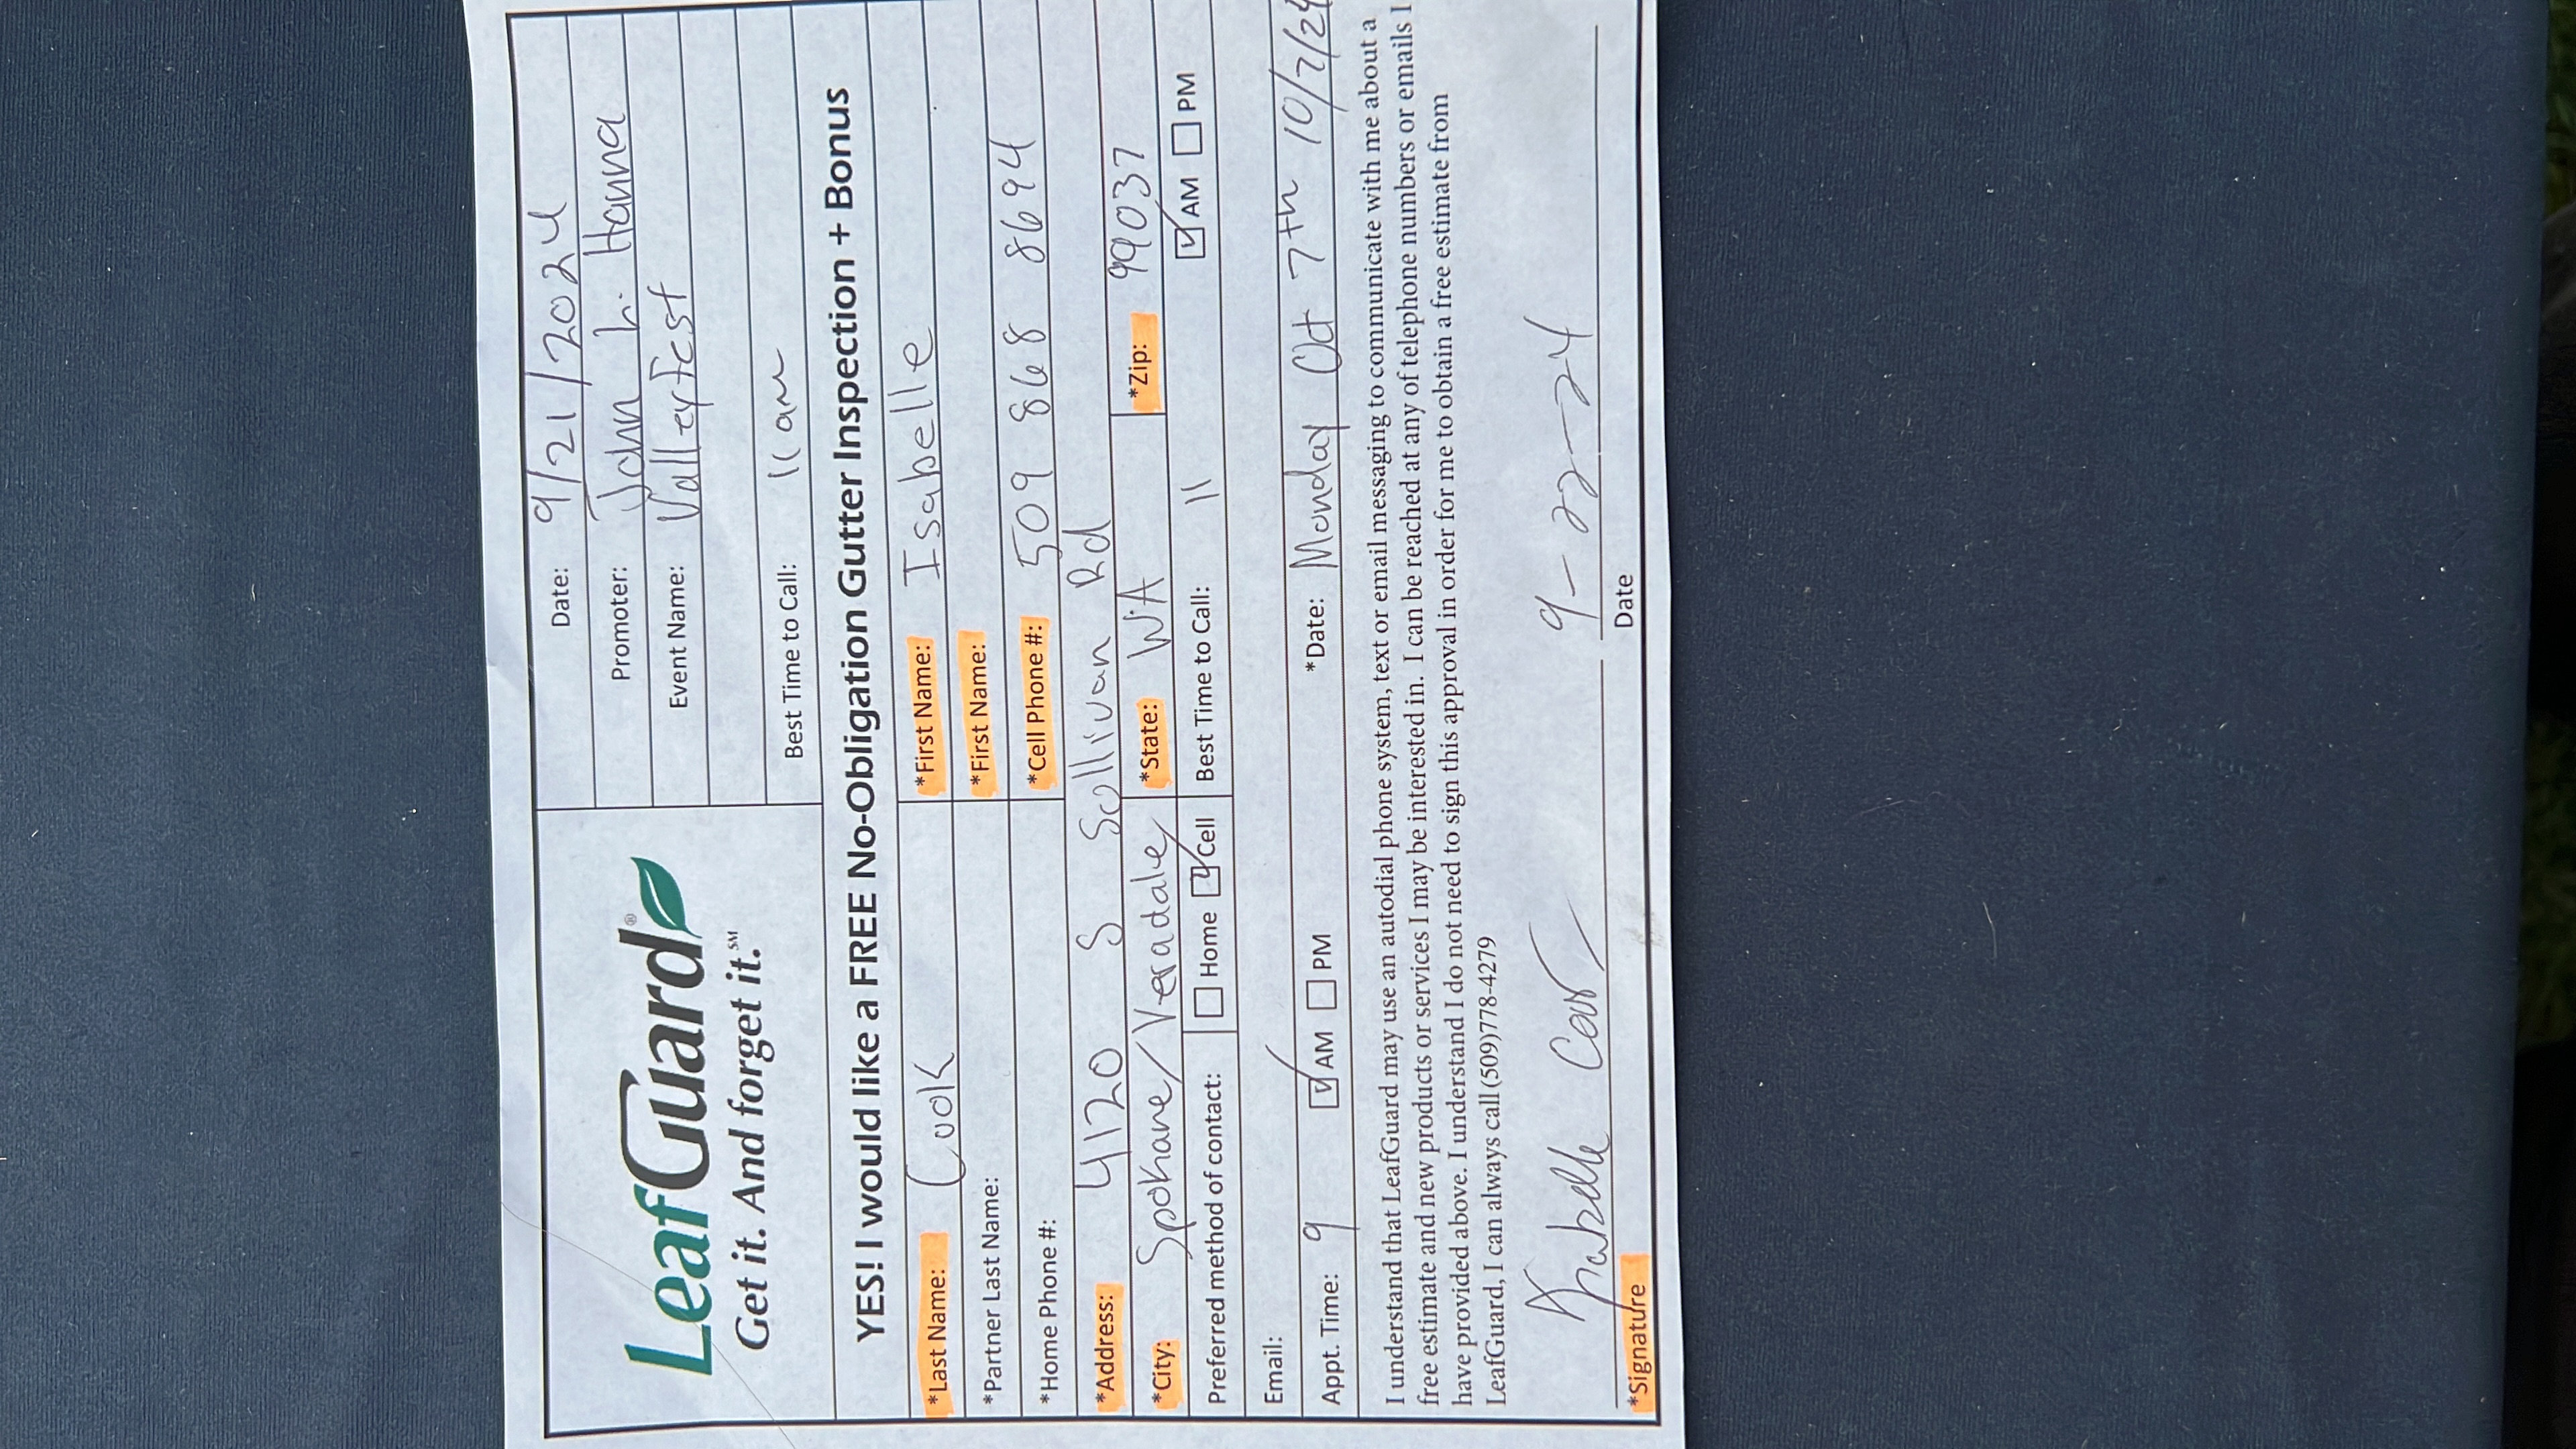 Date: 9/21/2024
Promoter: John L. Hanna
Event Name: Valleyfest
Best Time to Call: 11 am
LeafGuard®
Get it. And forget it.℠
YES! I would like a FREE No-Obligation Gutter Inspection + Bonus
*Last Name: Cook *First Name: Isabelle
*Partner Last Name: *First Name:
*Home Phone #: *Cell Phone #: 509 868 8694
*Address: 4120 S Sullivan Rd
*City: Spokane/Veradale *State: WA *Zip: 99037
Preferred method of contact: ☐ Home ☑ Cell Best Time to Call: 11 ☑ AM ☐ PM
Email:
Appt. Time: 9 ☑ AM ☐ PM *Date: Monday Oct 7th 10/7/24
I understand that LeafGuard may use an autodial phone system, text or email messaging to communicate with me about a
free estimate and new products or services I may be interested in. I can be reached at any of telephone numbers or emails I
have provided above. I understand I do not need to sign this approval in order for me to obtain a free estimate from
LeafGuard, I can always call (509)778-4279
Isabelle Cook 9-22-24
*Signature Date